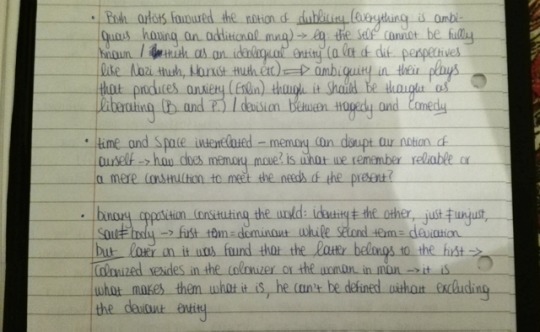 • Both artists favoured the notion of dublicity (everything is ambi-
guous having an additional mng) → eg. the self cannot be fully
known / truth as an ideological entity (a lot of dif. perspectives
like Nazi truth, Marxist truth etc) ⇒ ambiguity in their plays
that produces anxiety (Esslin) though it should be thought as
liberating (B and P.) / decision between tragedy and comedy
• time and space interrelated – memory can disrupt our notion of
ourself → how does memory move? Is what we remember reliable or
a mere construction to meet the needs of the present?
• binary opposition consituting the world: identity ≠ the other, just ≠ unjust,
soul ≠ body → first term = dominant while second term = deviation
but later on it was found that the latter belongs to the first →
Colonized resides in the colonizer or the woman in man → it is
what makes them what it is, he can't be defined without excluding
the deviant entity